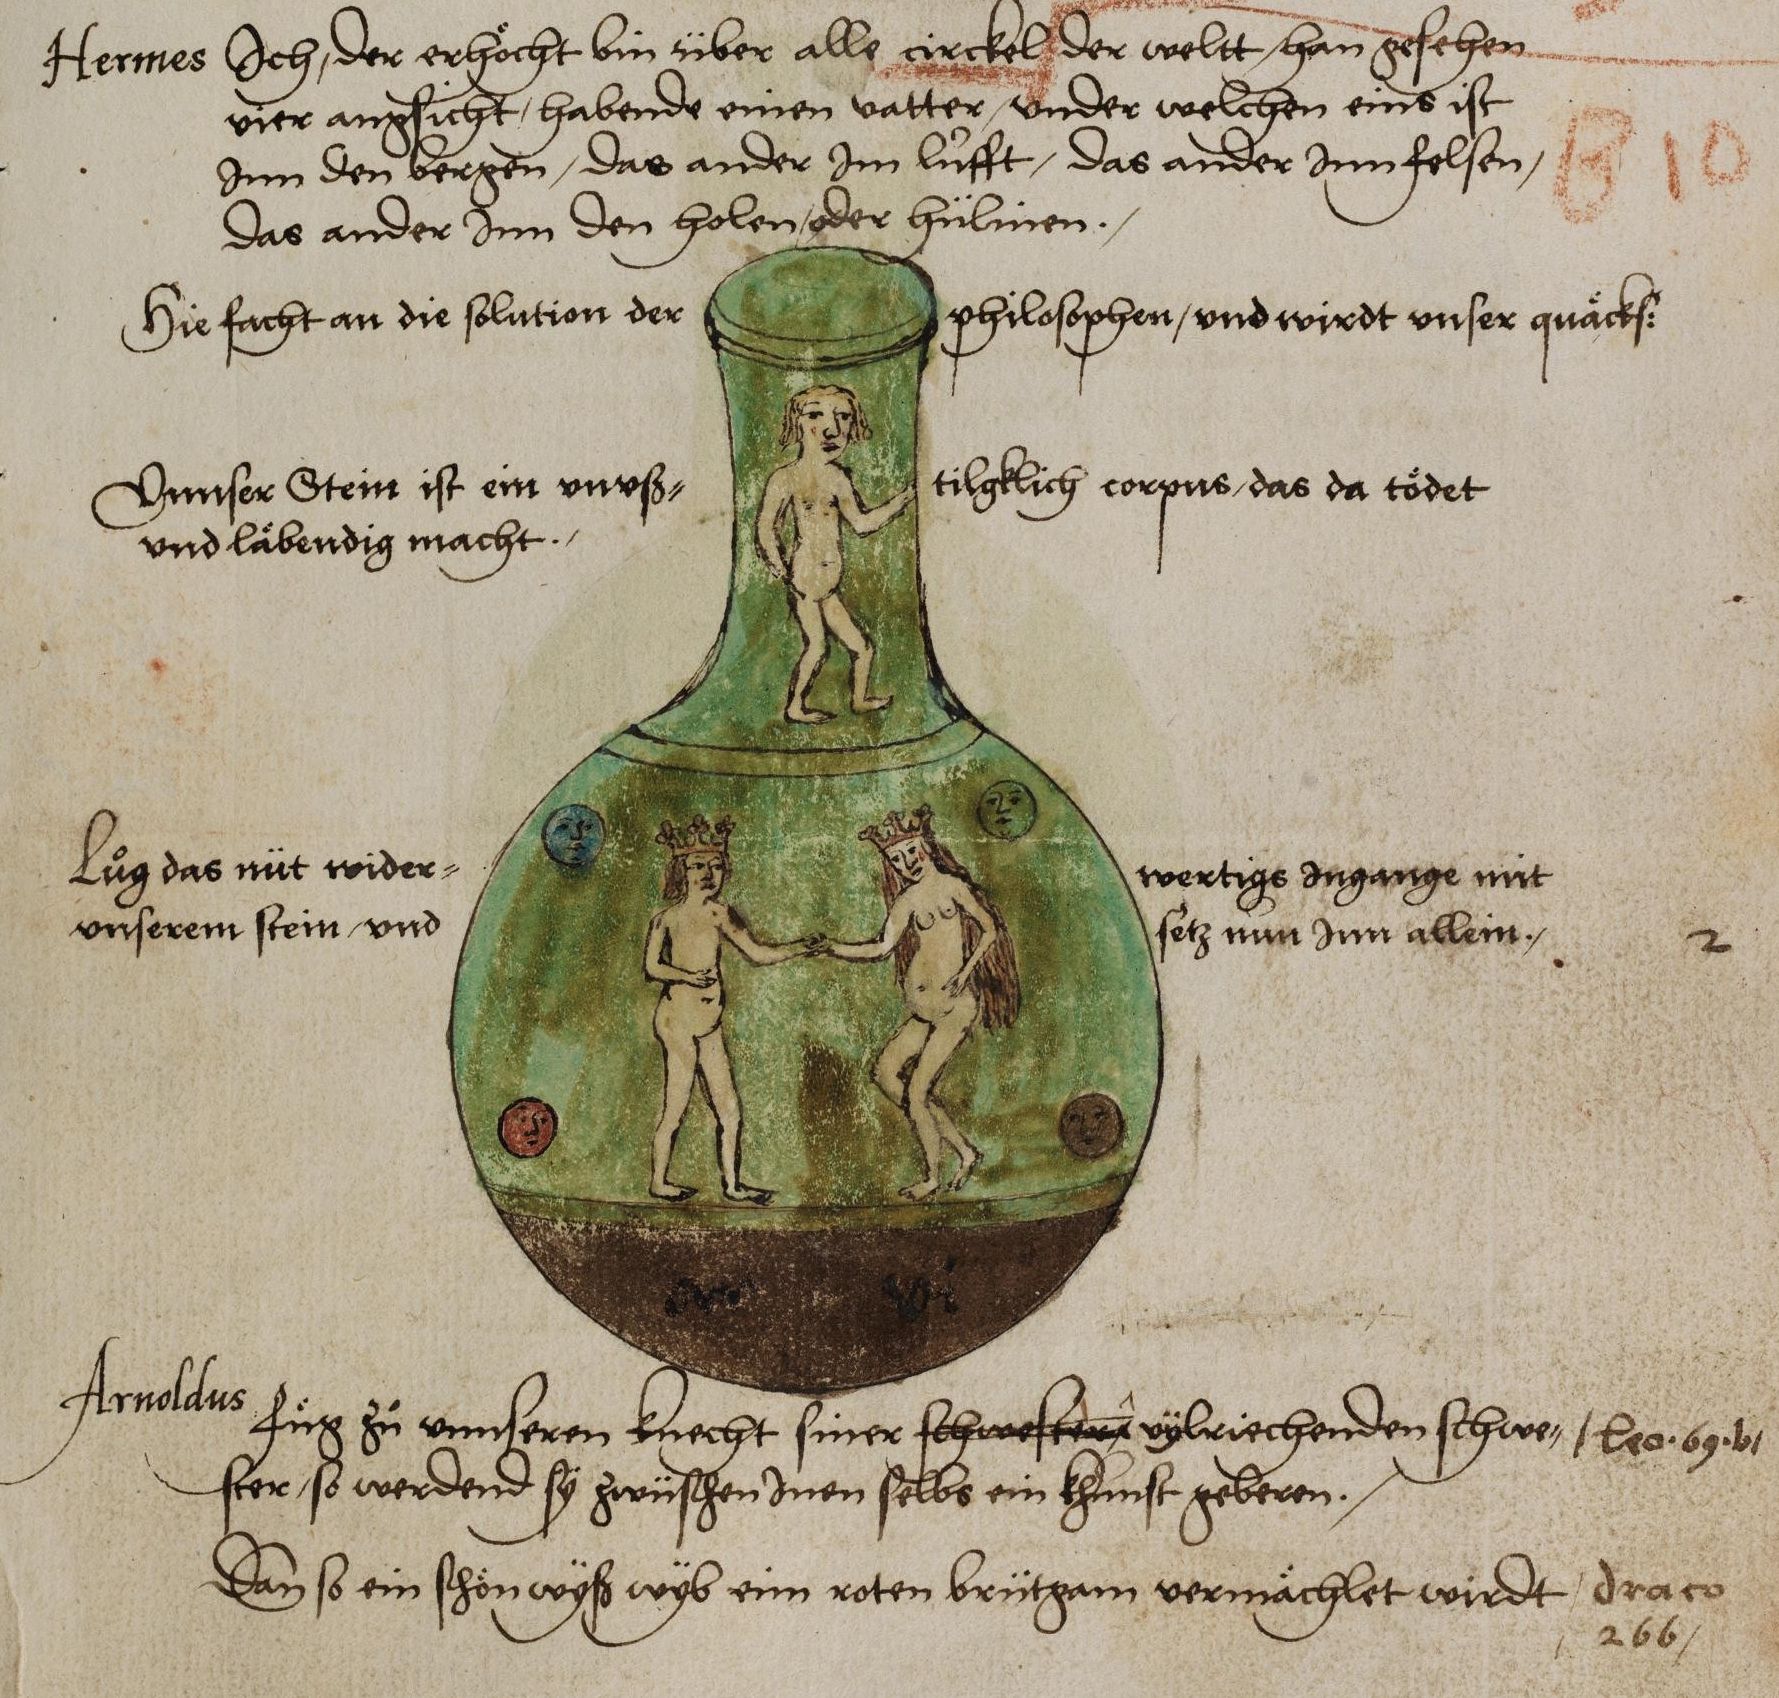 Hermes Ich, der erhöcht bin über alle circkel der weltt, han gesehen
vier angsicht, habende einen vatter, under welchen eins ist
Inn den bergen, das ander Im lufft, das ander Inn felsen,
das ander Inn den holen, oder hülinen.
B 10
Hie facht an die solution der philosophen, und wirdt unser quäcks:
Unnser Stein ist ein unuß= tilgklich corpus, das da tödet
und läbendig macht.
Lůg das nüt wider= wertigs Ingange mit
unserem stein, und setz nun Inn allein.
2
Arnoldus Füg zů unnseren knecht siner schwester vylriechenden schwe= / Leo. 69. b,
ster, so werdend sÿ zwüschen Inen selbs ein khunst geberen.
Dan so ein schön wyß wyb eim roten brütgam vermächlet wirdt / draco
266